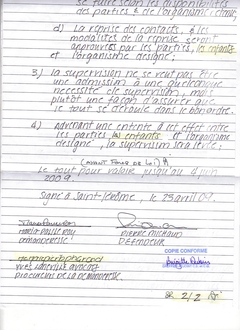 se faire selon les disponibilités
des parties & de l'organisme choisi;
d) La reprise des contacts, & les
modalités de la reprise, seront
approuvées par les parties, les enfants
& l'organisme désigné;
3.) la supervision ne se veut pas être
une admission à une quelconque
nécessité de supervision, mais
plutôt une façon d'assurer que
le tout se déroule dans le bon ordre.
4.) advenant une entente à cet effet entre
les parties, les enfants et l'organisme
désigné, la supervision sera levée.
(ayant force de loi)
Le tout pour valoir jusqu'au 4 juin
2009.
Signé à Saint-Jérôme, le 23 avril 09.
demanderesse
Pierre Michaud
défendeur
COPIE CONFORME
avocate
procureure de la demanderesse
P. 2/2